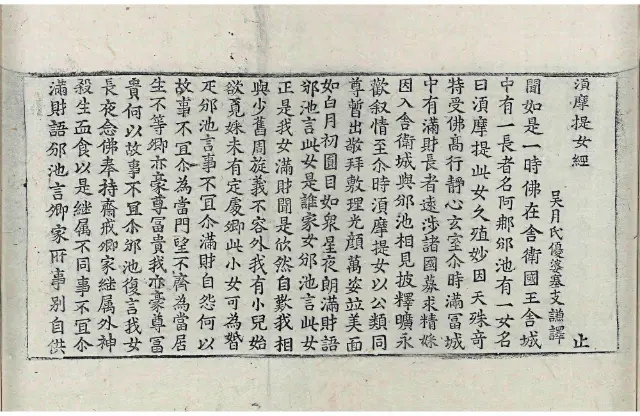 須摩提女經 止
吳月氏優婆塞支謙譯
聞如是一時佛在舍衛國王舍城
中有一長者名阿那邠池有一女名
曰須摩提此女久殖妙因天殊奇
特受佛高行靜心玄室尒時滿冨城
中有滿財長者遠涉諸國募求精嫁
因入舍衛城與邠池相見披釋曠永
歡叙情至尒時須摩提女以公類同
尊暫出敬拜敷理光顏萬姿竝美面
如白月初圓目如衆星夜朗滿財語
邠池言此女是誰家女邠池言此女
正是我女滿財聞是欣然自歎我相
與少舊周旋義不容外我有小兒始
欲覓妹未有定處卿此小女可為婚
疋邠池言事不宜尒滿財自怨何以
故事不宜尒為當門望不齊為當居
生不等卿亦豪尊冨貴我亦豪尊冨
貴何以故事不宜尒邠池復言我女
長夜念佛奉持齋戒卿家継属外神
殺生血食以是継属不同事不宜尒
滿財語邠池言卿家所事別自供